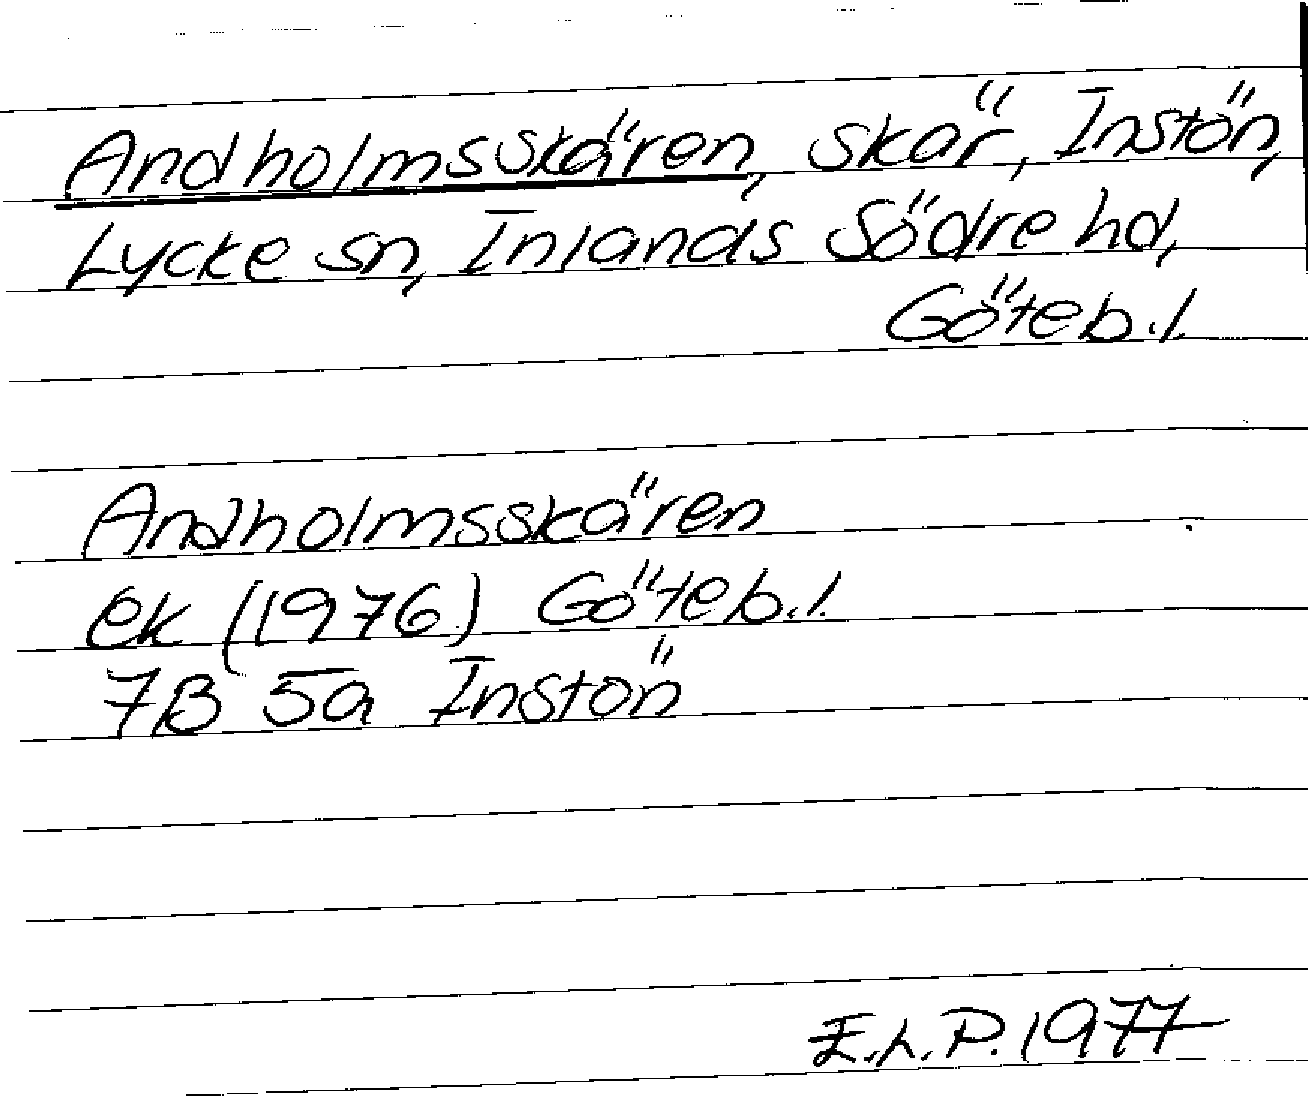 Andholmsskären, skär, Instön,
Lycke sn, Inlands Södre hd,
Göteb.l.
Andholmsskären
ek (1976) Göteb.l.
7B 5a Instön
E.L.P. 1977